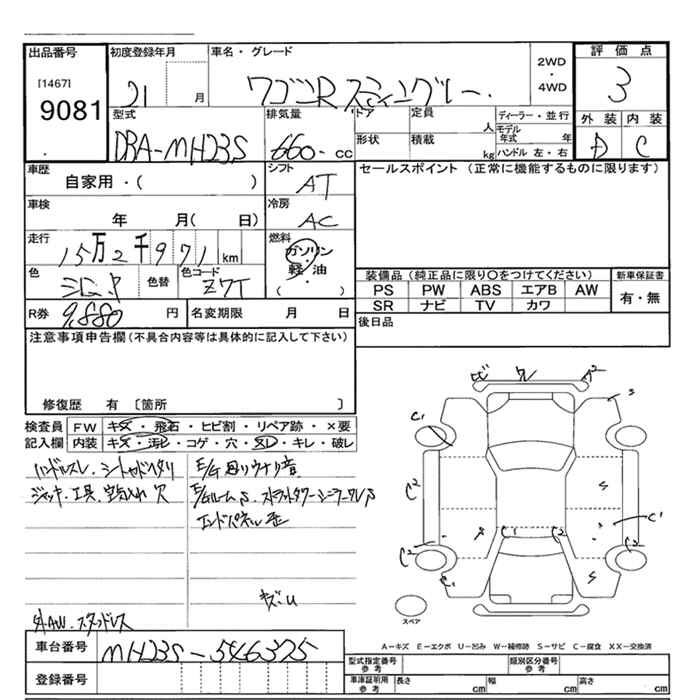 出品番号 初度登録年月 車名・グレード 2WD・4WD 評価点
[1467] 9081 21 月 ワゴンR スティングレー 3
型式 排気量 ドア 定員 人 ディーラー・並行 外装 内装
DBA-MH23S 660 cc 形状 積載 kg モデル年式 年 ハンドル 左・右 D C
車歴 シフト セールスポイント (正常に機能するものに限ります)
自家用・( ) AT
車検 冷房
年 月( 日) AC
走行 燃料
15万2千971km ガソリン・軽油
色 色替 色コード ( )
シロ ZWT
装備品 (純正品に限り〇をつけてください) 新車保証書
PS PW ABS エアB AW 有・無
SR ナビ TV カワ
R券 9,880 円 名変期限 月 日 後日品
注意事項申告欄 (不具合内容等は具体的に記入して下さい)
修復歴 有 〔箇所 〕
検査員 FW キズ・飛石・ヒビ割・リペア跡・×要
記入欄 内装 キズ・汚レ・コゲ・穴・ヌレ・キレ・破レ
ハンドルスレ
E/G
ジャッキ・工具・空気入れ 欠
E/Gルーム S
エンドパネル 歪
キズ・U
外AW スタッドレス
C1 C2 C2 C1 A2 S S C1 C2 S C1 C2
スペア
A-キズ E-エクボ U-凹み W-補修跡 S-サビ C-腐食 XX-交換済
車台番号 MH23S-546375
登録番号
型式指定番号 参考 類別区分番号 参考
車庫証明用 参考 長さ cm 幅 cm 高さ cm